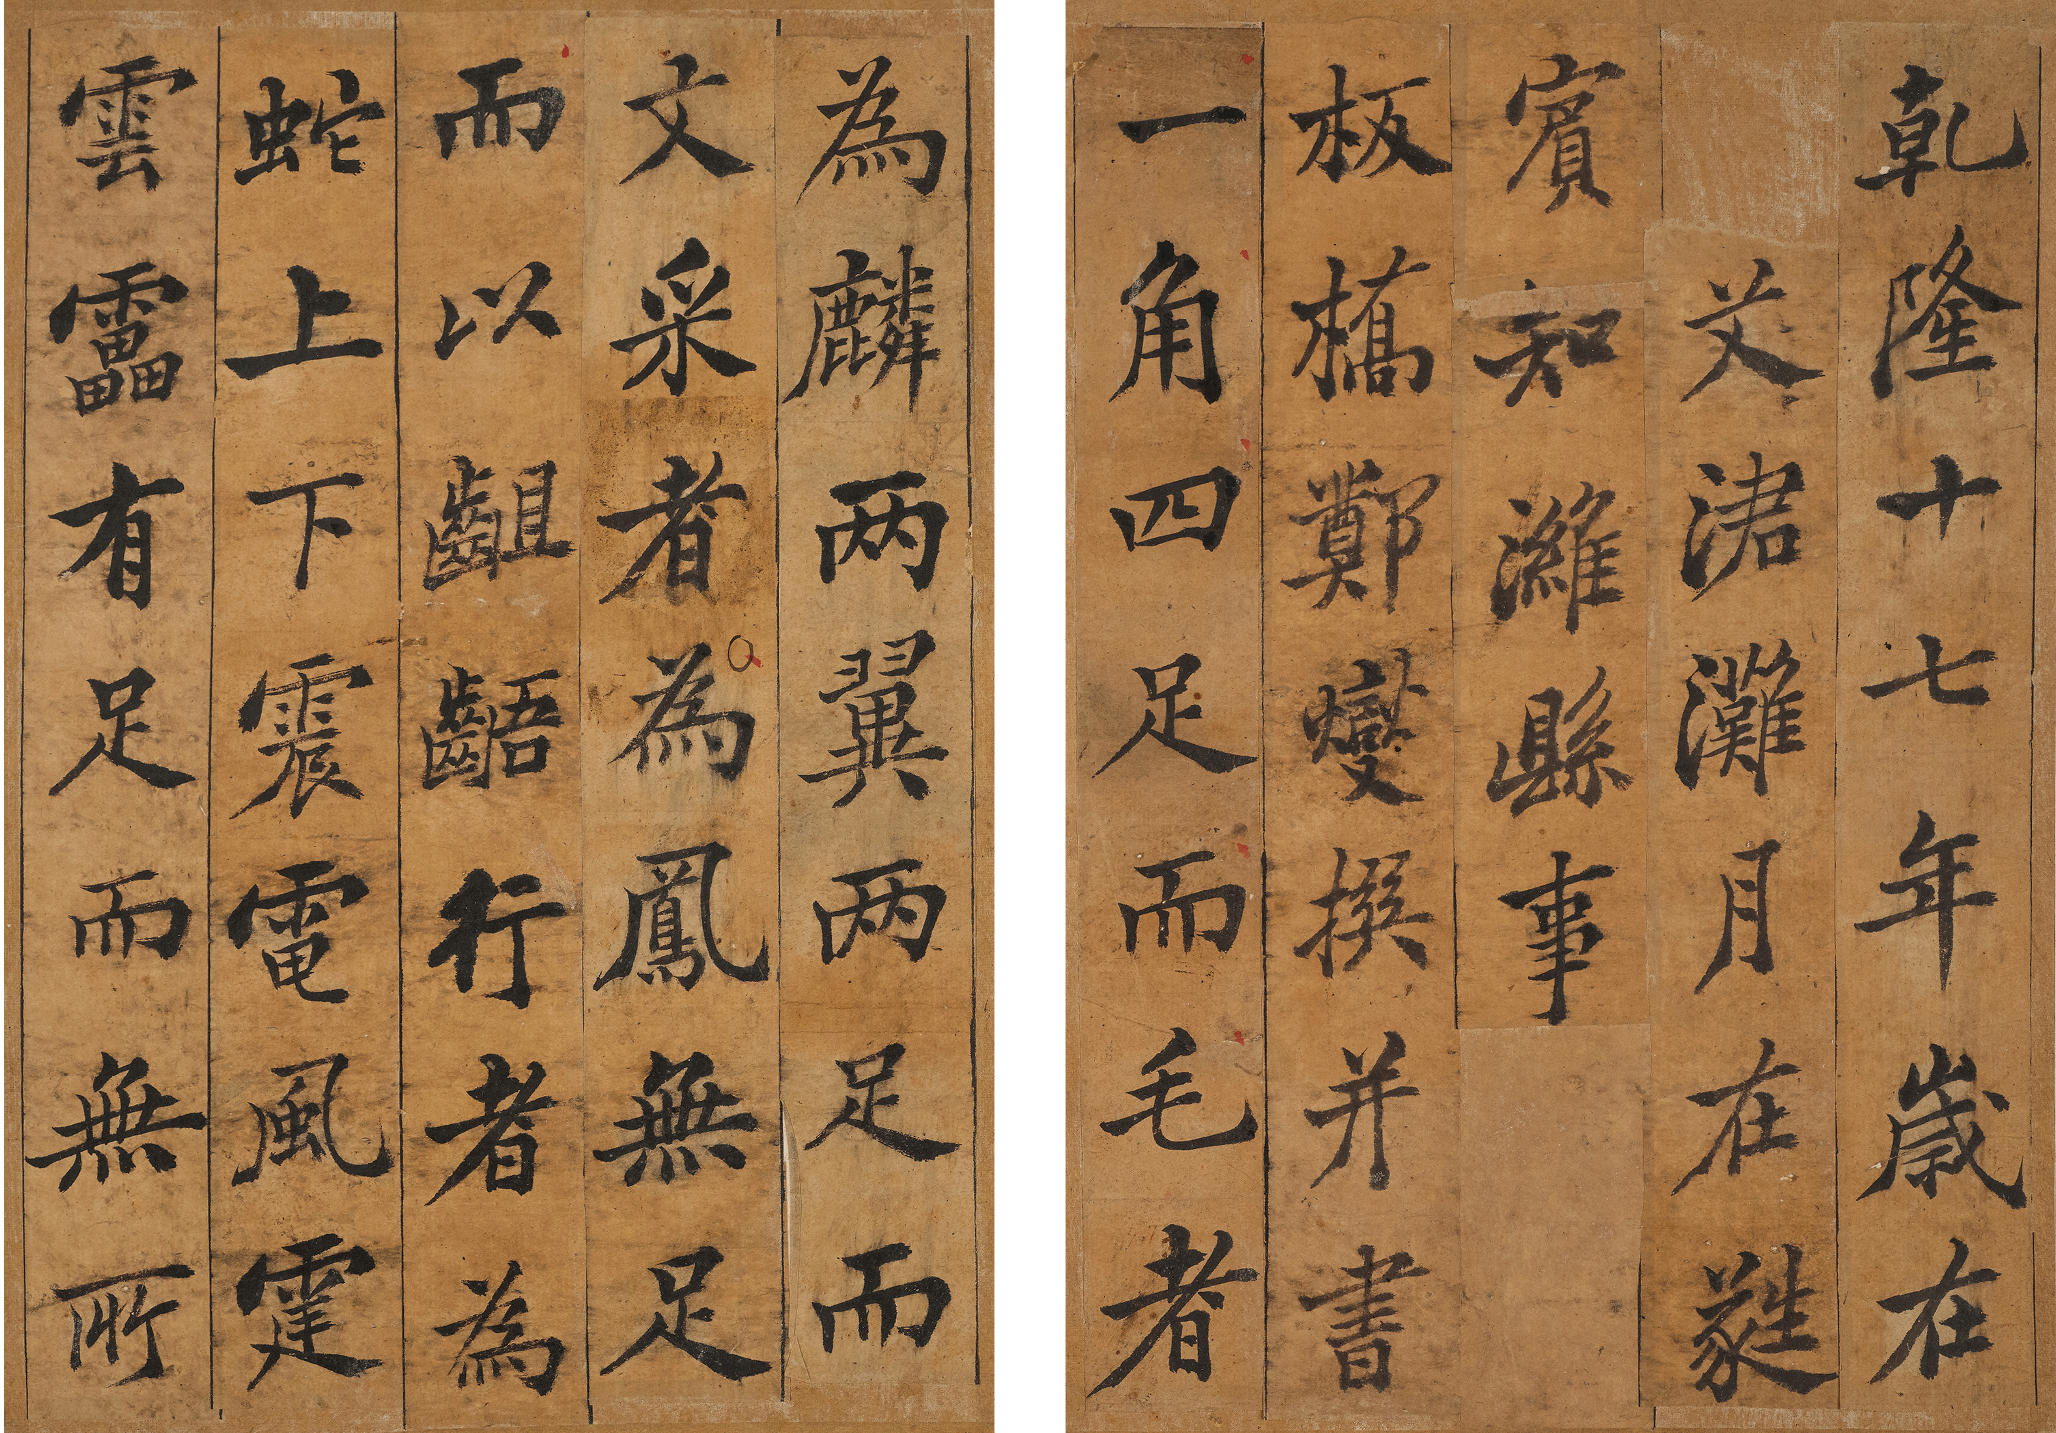 乾隆十七年嵗在
艾涒灘月在蕤
賓知濰縣事
板橋鄭燮撰并書
一角四足而毛者
為麟两翼两足而
文采者為鳳無足
而以齟齬行者為
蛇上下震電風霆
雲靁有足而無所